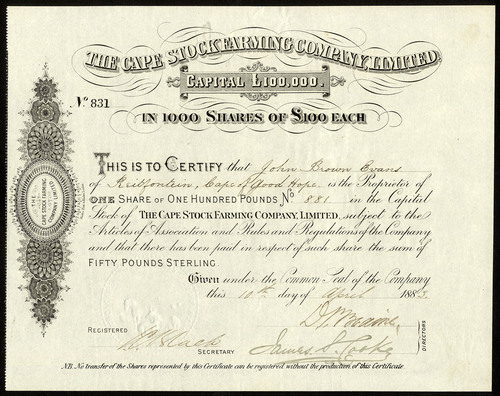 THE CAPE STOCKFARMING COMPANY, LIMITED.
CAPITAL £100,000.
IN 1000 SHARES OF £100 EACH
No 831
THIS IS TO CERTIFY that John Brown Evans
of Rietfontein, Cape of Good Hope, is the Proprietor of
ONE SHARE OF ONE HUNDRED POUNDS No 881 in the Capital
Stock of THE CAPE STOCK FARMING COMPANY, LIMITED, subject to the
Articles of Association and Rules and Regulations of the Company
and that there has been paid in respect of such share the sum of
FIFTY POUNDS STERLING.
Given under the Common Seal of the Company
this 10th day of April 1883.
REGISTERED
SECRETARY
James S. Cooke
DIRECTORS
N.B. No transfer of the Shares represented by this Certificate can be registered without the production of this Certificate.
THE CAPE STOCK FARMING COMPANY LIMITED